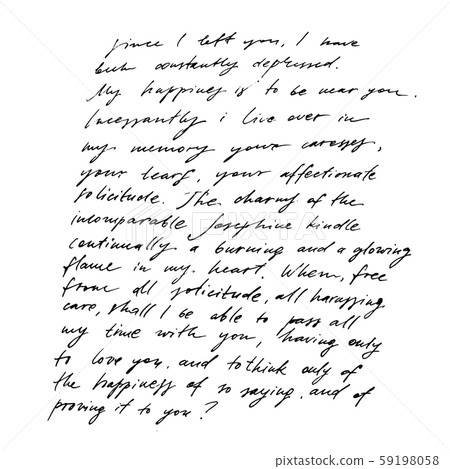 since I left you, I have
been constantly depressed.
My happiness is to be near you.
Incessantly i live over in
my memory your caresses,
your tears, your affectionate
solicitude. The charms of the
incomparable Josephine kindle
continually a burning and a glowing
flame in my heart. When, free
from all solicitude, all harassing
care, shall I be able to pass all
my time with you, having only
to love you, and to think only of
the happiness of so saying, and of
proving it to you?
PIXTA
pixta.jp - 59198058